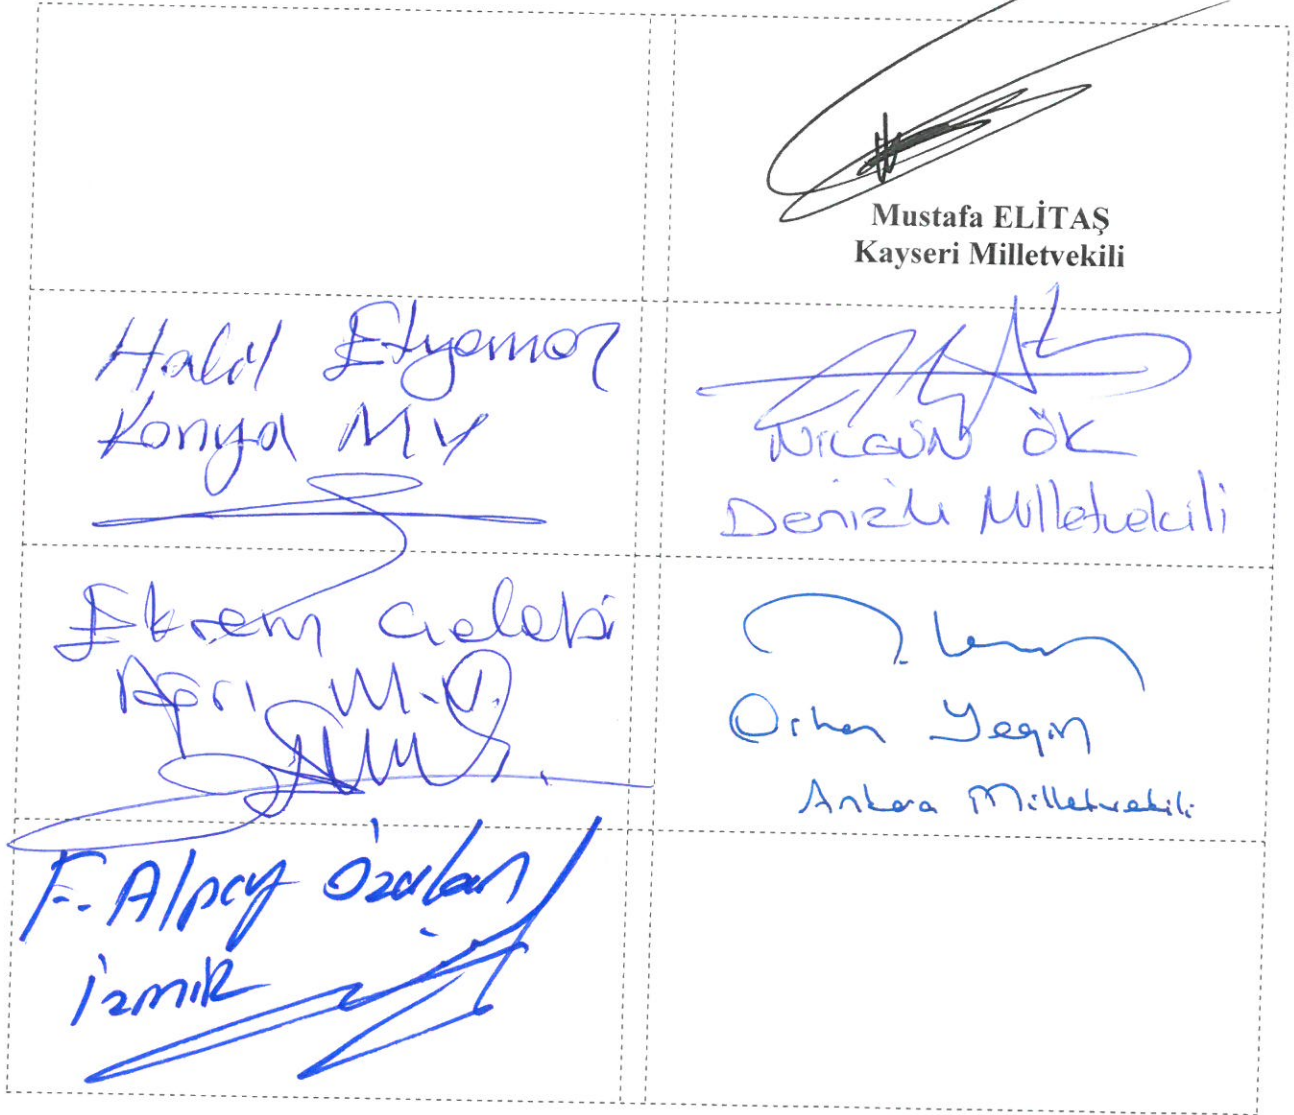 Mustafa ELİTAŞ
Kayseri Milletvekili
Halil Etyemez
Konya MV
NİLGÜN ÖK
Denizli Milletvekili
Ekrem Çelebi
Ağrı M.V.
Orhan Yegin
Ankara Milletvekili
F. Alpay Özalan
İzmir